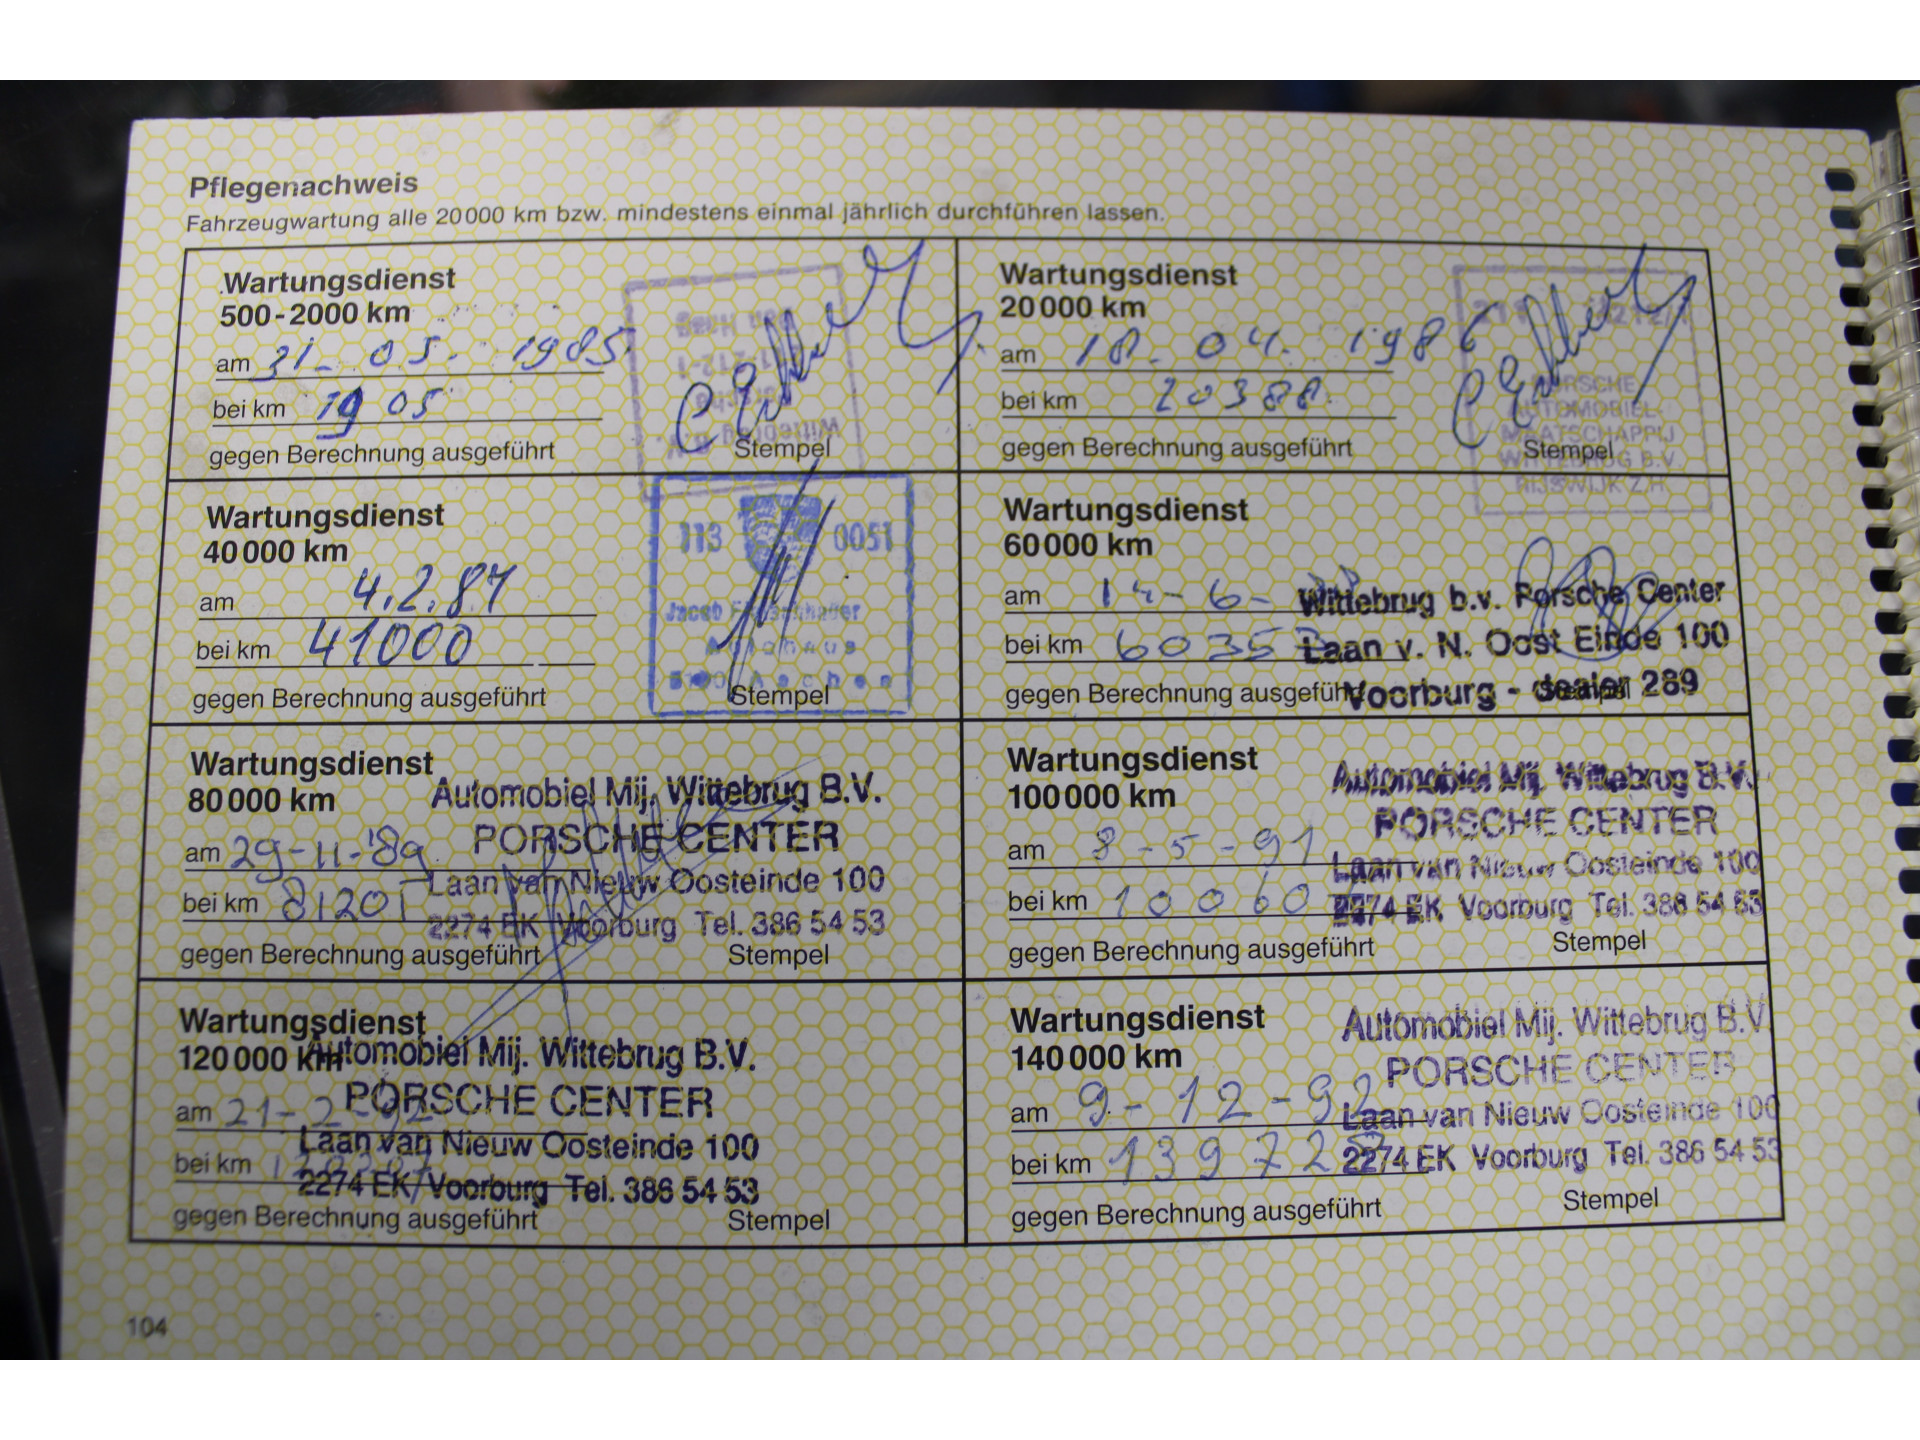 Pflegenachweis
Fahrzeugwartung alle 20000 km bzw. mindestens einmal jährlich durchführen lassen.
Wartungsdienst
500-2000 km
am 31-05-1985
bei km 1905
gegen Berechnung ausgeführt
Stempel
Den Haag
Porsche
Wittebrug B.V.
Wartungsdienst
20000 km
am 18-04-1986
bei km 20388
gegen Berechnung ausgeführt
Stempel
PORSCHE
AUTOMOBIEL-
MAATSCHAPPIJ
WITTEBRUG B.V.
RIJSWIJK Z.H.
Wartungsdienst
40000 km
am 4.2.87
bei km 41000
gegen Berechnung ausgeführt
Stempel
113 0051
Jacob
Autohaus
Aachen
Wartungsdienst
60000 km
am 14-6-
bei km 6035
gegen Berechnung ausgeführt
Wittebrug b.v. Porsche Center
Laan v. N. Oost Einde 100
Voorburg - dealer 289
Wartungsdienst
80000 km
am 29-11-'89
bei km 81201
gegen Berechnung ausgeführt
Stempel
Automobiel Mij. Wittebrug B.V.
PORSCHE CENTER
Laan van Nieuw Oosteinde 100
2274 EK Voorburg Tel. 386 54 53
Wartungsdienst
100000 km
am 8-5-91
bei km 10060
gegen Berechnung ausgeführt
Stempel
Automobiel Mij. Wittebrug B.V.
PORSCHE CENTER
Laan van Nieuw Oosteinde 100
2274 EK Voorburg Tel. 386 54 53
Wartungsdienst
120000 km
am 21-2-92
bei km
gegen Berechnung ausgeführt
Stempel
Automobiel Mij. Wittebrug B.V.
PORSCHE CENTER
Laan van Nieuw Oosteinde 100
2274 EK Voorburg Tel. 386 54 53
Wartungsdienst
140000 km
am 9-12-92
bei km 13972
gegen Berechnung ausgeführt
Stempel
Automobiel Mij. Wittebrug B.V.
PORSCHE CENTER
Laan van Nieuw Oosteinde 100
2274 EK Voorburg Tel. 386 54 53
104